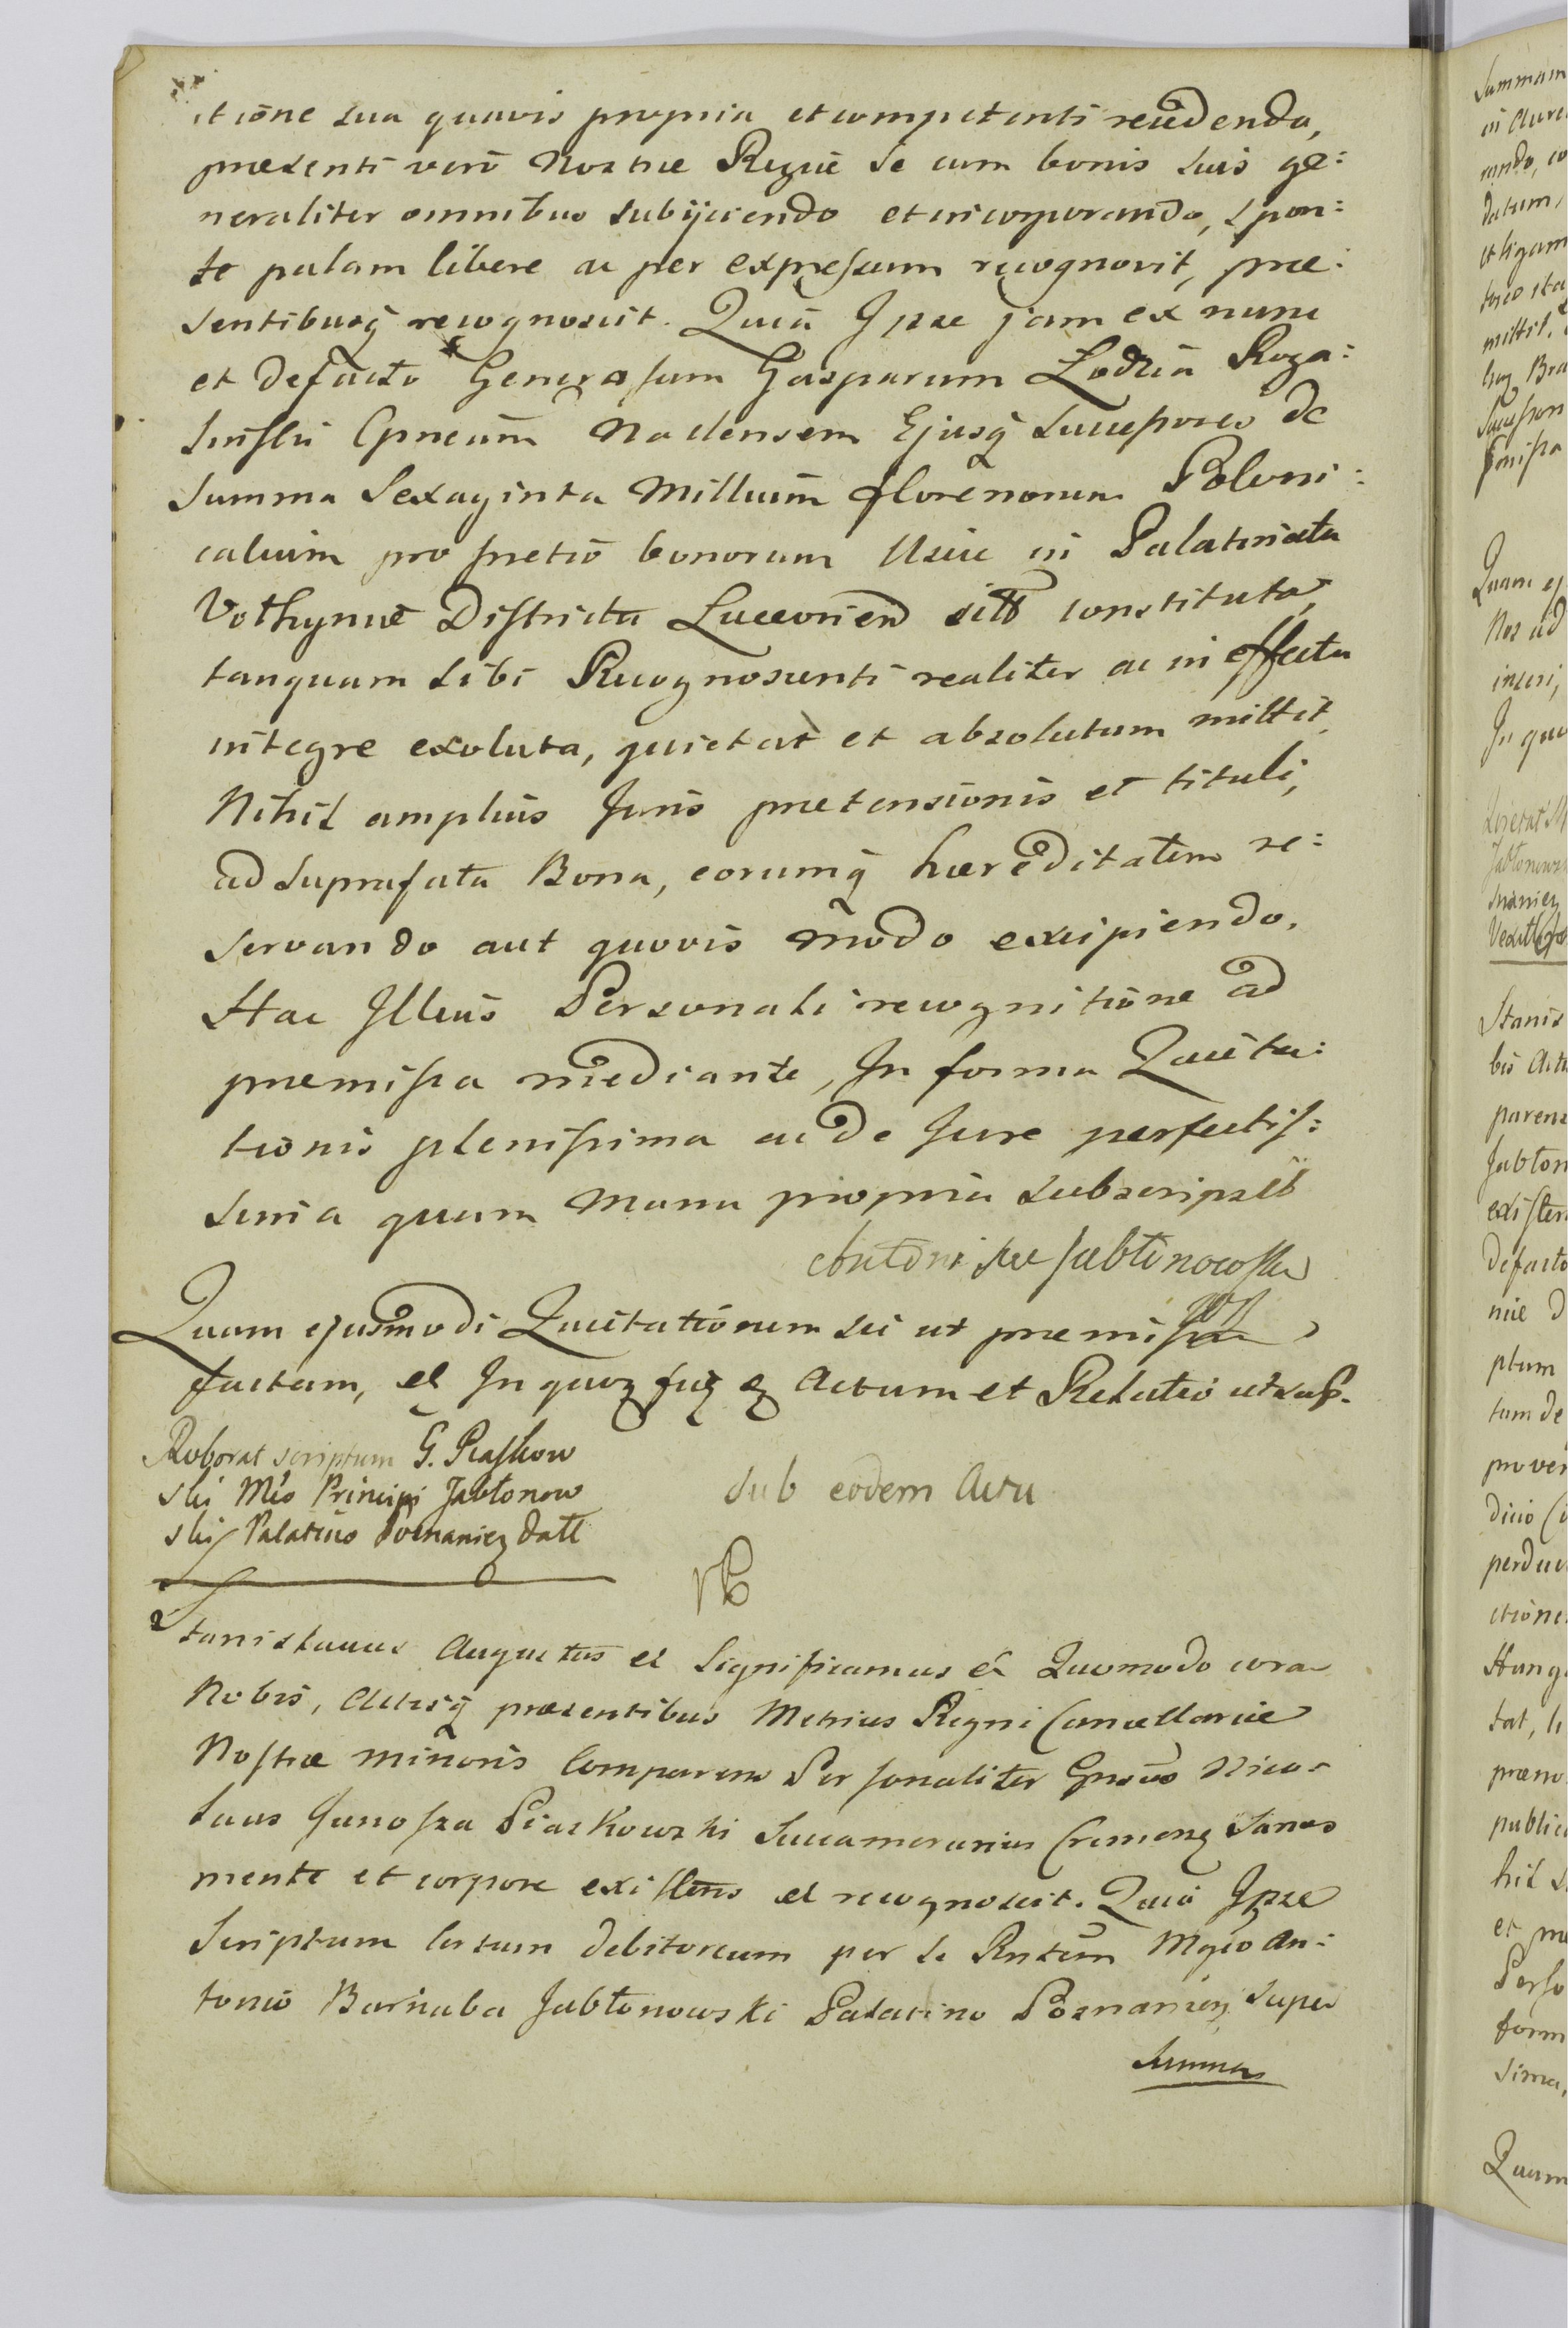 ctione sua quavis propria et competenti recedendo,
præsenti verò Nostræ Regiæ se cum bonis suis ge:
neraliter omnibus subijciendo et incorporando, spon:
te palam libere ac per expressum recognovit, præ:
sentibusq recognoscit. Quia Ipse jam ex nunc
et defacto Generosum Gasparum Lodzia Roga:
linski Capneum Naclensem Ejusq Successores de
Summa Sexaginta Millium florenorum Poloni:
calium pro pretio bonorum Usice in Palatinatu
Volhyniæ Districtu Luceorien sitt constituta,
tanquam sibi Recognoscenti realiter ac in effectu
integre exoluta, quietat et absolutum mittit,
Nihil amplius Juris prætensionis et tituli,
ad suprafata Bona, eorumq hæreditatem re:
servando aut quovis modo excipiendo.
Hac Illius Personali recognitione ad
præmissa mediante, In forma Quieta:
tionis plenissima ac de Jure perfectis:
sima quam Manu propria subscripsit
Antoni Jabłonowski
Quam ejusmodi Quietationem sic ut præmissum
factam, et In quoz fid: Actum et Relatio ut sup.
Roborat scriptum G. Piaskow
ski Mco Principi Jabłonow
ski Palatino Posnanien datt
Sub eodem Actu
Stanislaus Augustus et Significamus et Quomodo cora
Nobis, Actisq præsentibus Metrices Regni Cancellariæ
Nostræ minoris Comparens Personaliter Gnosus Nico-
laus Junosza Piaskowski Succamerarius Cremenẽ Sanus
mente et corpore existens et recognoscit. Quia Ipse
Scriptum certum debitorium per se Rntem Mgco An:
tonio Barnaba Jabłonowski Palatino Posnanien super
Summa
Summam
in Aure
rando, co
datum,
et ligam
mittit.
Succession
Quam ej
Nos ad
inseri,
In quo
Jabłonows
Stanis
bis Acti
parens
Jabłon
existen
Defacto
niæ D
ptum
tum de
prover
dicio
perduc
ctione
Hung
tat, li
præno
public
hil
et me
Perso
form
sima,
Quam